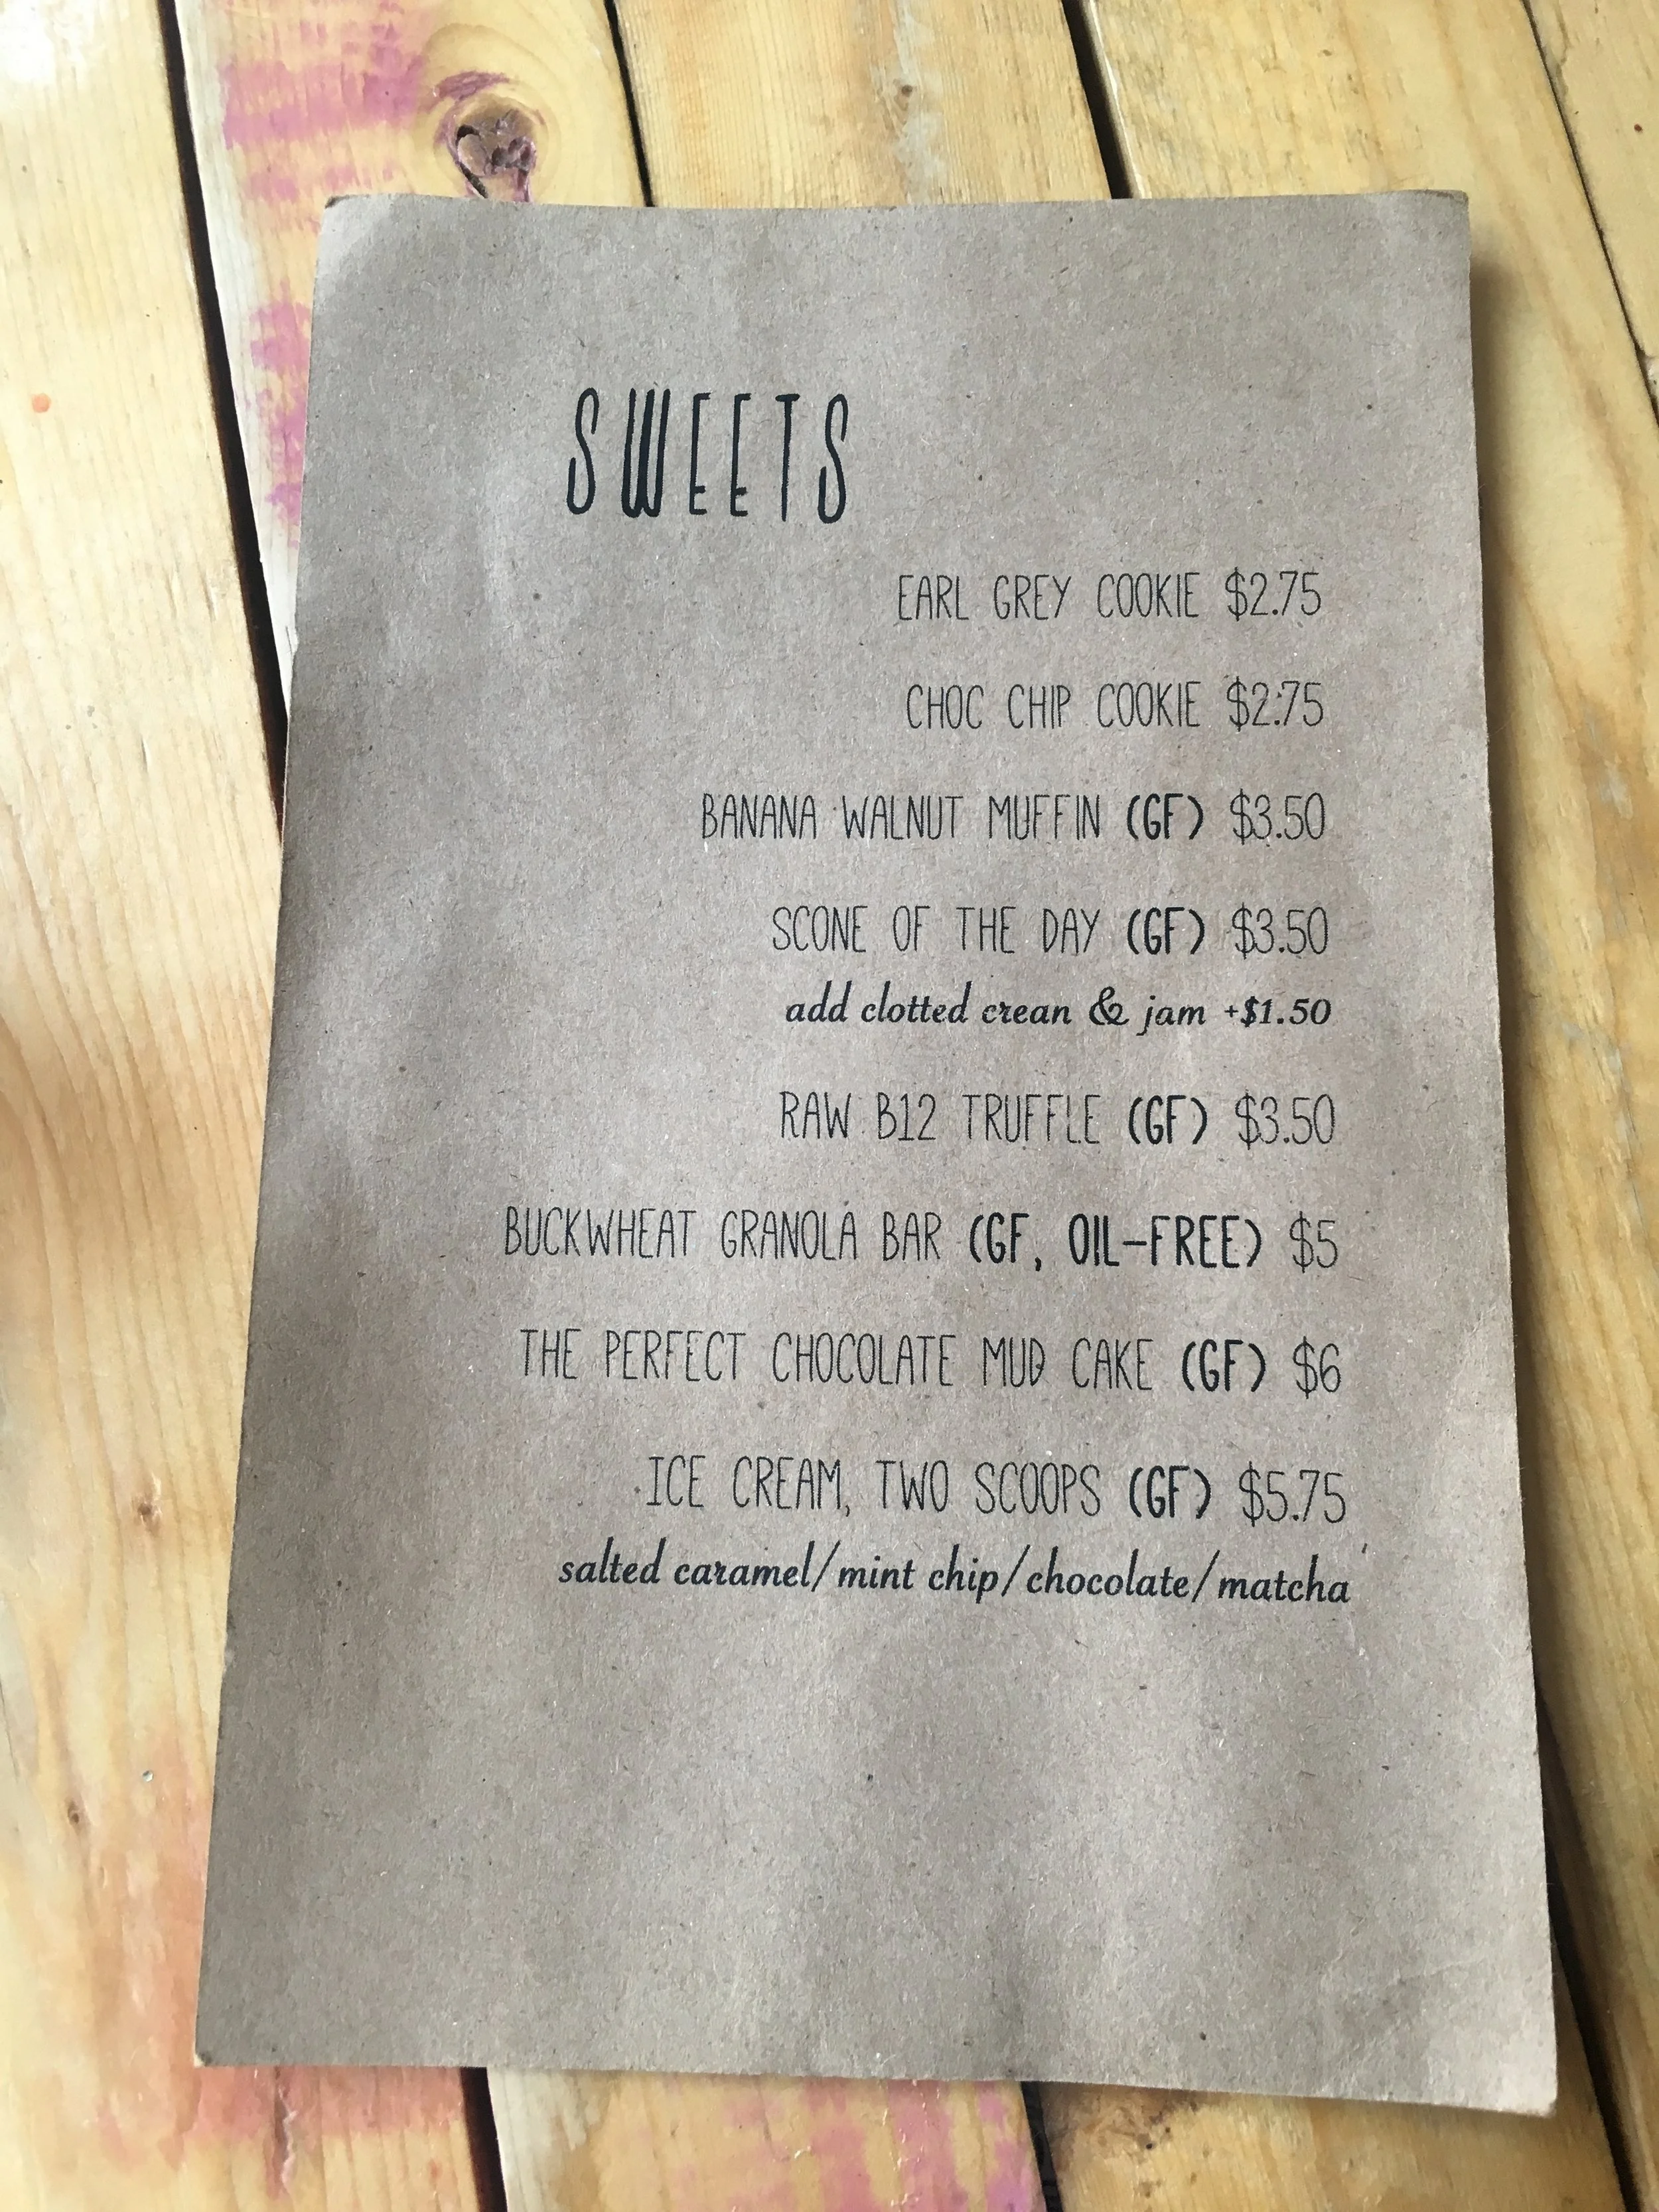 SWEETS
EARL GREY COOKIE $2.75
CHOC CHIP COOKIE $2.75
BANANA WALNUT MUFFIN (GF) $3.50
SCONE OF THE DAY (GF) $3.50
add clotted crean & jam +$1.50
RAW B12 TRUFFLE (GF) $3.50
BUCKWHEAT GRANOLA BAR (GF, OIL-FREE) $5
THE PERFECT CHOCOLATE MUD CAKE (GF) $6
ICE CREAM, TWO SCOOPS (GF) $5.75
salted caramel/mint chip/chocolate/matcha